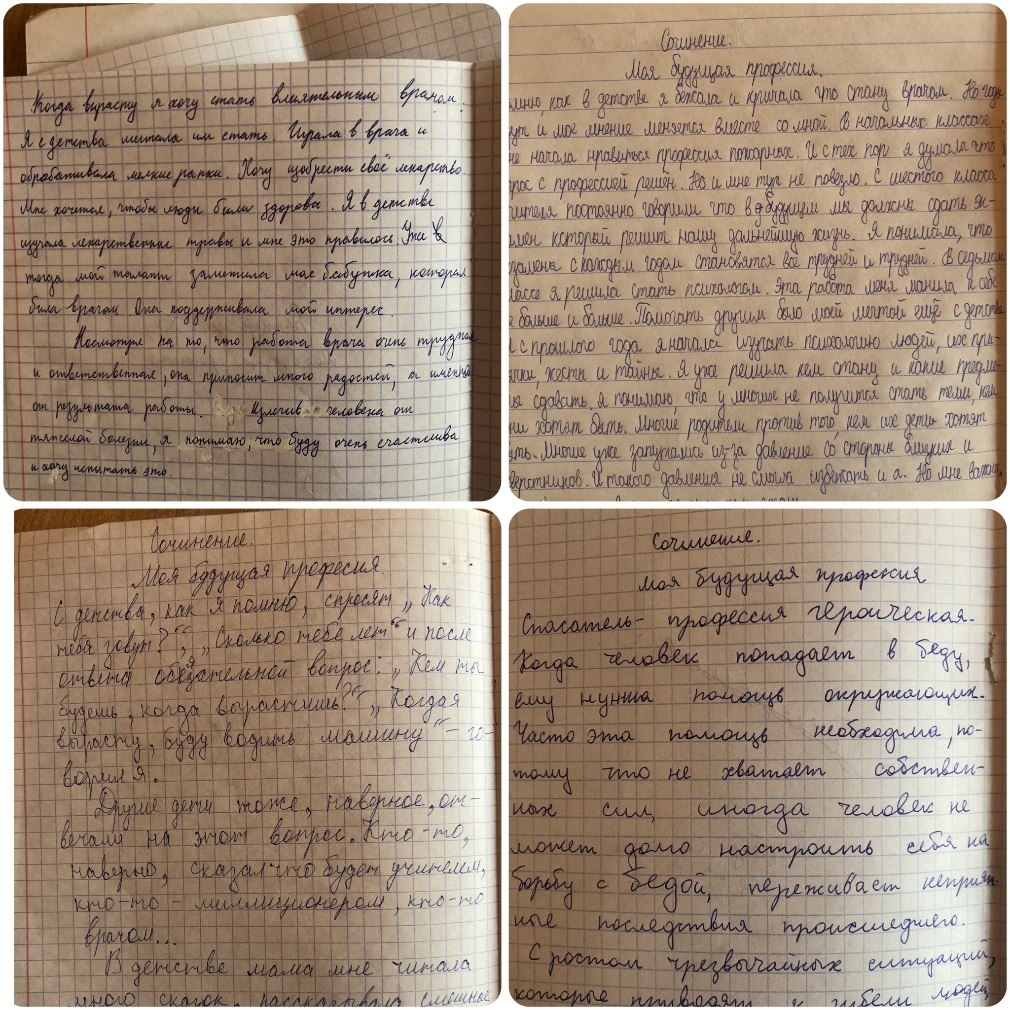 Когда вырасту я хочу стать влиятельным врачом.
Я с детства мечтала им стать Играла в врача и
обрабатывала мелкие ранки. Хочу изобрести своё лекарство.
Мне хочется, чтобы люди были здоровы. Я в детстве
изучала лекарственные травы и мне это нравилось Уже в
тогда мой талант заметила моя бабушка, которая
была врачом Она поддерживала мой интерес.
Несмотря на то, что работа врача очень трудная
и ответственная, она приносит много радостей, а именно
от результата работы. Излечив человека от
тяжелой болезни, я понимаю, что буду очень счастлива
и хочу испытать это.
Сочинение.
Моя будущая профессия.
мню, как в детстве я бежала и кричала что стану врачом. Но годы
дут и моё мнение меняется вместе со мной. В начальных классах
не начала нравиться профессия пожарных. И с тех пор я думала что
прос с профессией решён. Но и мне тут не повезло. С шестого класса
чителя постоянно говорили что в будущем мы должны сдать эк-
амен который решит нашу дальнейшую жизнь. Я понимала, что
кзамена с каждым годом становятся всё трудней и трудней. В седьмом
лассе я решила стать психологом. Эта работа меня манила к себе
ё больше и больше. Помогать другим было моей мечтой ещё с детства
и с прошлого года я начала изучать психологию людей, их при-
ычки, жесты и тайны. Я уже решила кем стану и какие предме-
ы сдавать. я понимаю, что у многих не получится стать теми, кем
они хотят быть. Многие родители против того кем их дети хотят
ыть. Многие уже запутались из-за давление со стороны близких и
верстников. И такого давления не смогла избежать и я. Но мне важно
Сочинение.
Моя будущая професия.
С детства, как я помню, спросят „Как
тебя зовут?“, „Сколько тебе лет“ и после
ответа обязательной вопрос: „Кем ты
будешь, когда вырастишь?“ „Когда я
вырасту, буду водить машину“ - го-
ворил я.
Другие дети тоже, наверное, от-
вечали на этот вопрос. Кто-то,
наверно, сказал что будет учителем,
кто-то - миллиционером, кто-то
врачом...
В детстве мама мне читала
много сказок, рассказывала смешные
Сочинение.
Моя будущая профессия
Спасатель- профессия героическая.
Когда человек попадает в беду,
ему нужна помощь окружающих.
Часто эта помощь необходима, по-
тому что не хватает собствен-
ных сил, иногда человек не
может долго настроить себя на
борьбу с бедой, переживает неприят-
ные последствия происшедшего.
С ростом чрезвычайных ситуаций,
которые приводят к гибели людей